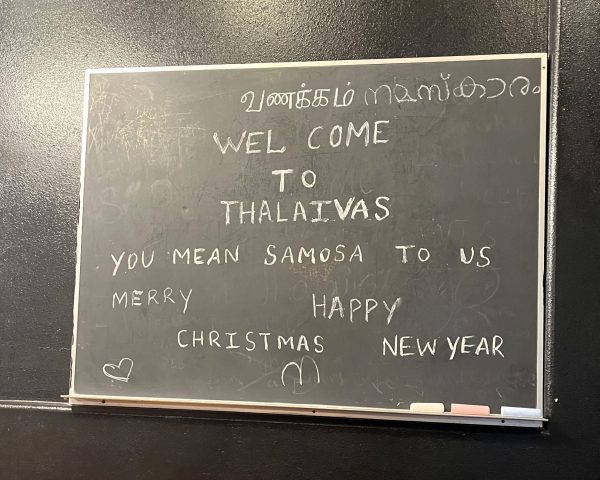 வணக்கம் നമസ്കാരം
WELCOME
TO
THALAIVAS
YOU MEAN SAMOSA TO US
MERRY HAPPY
CHRISTMAS NEW YEAR